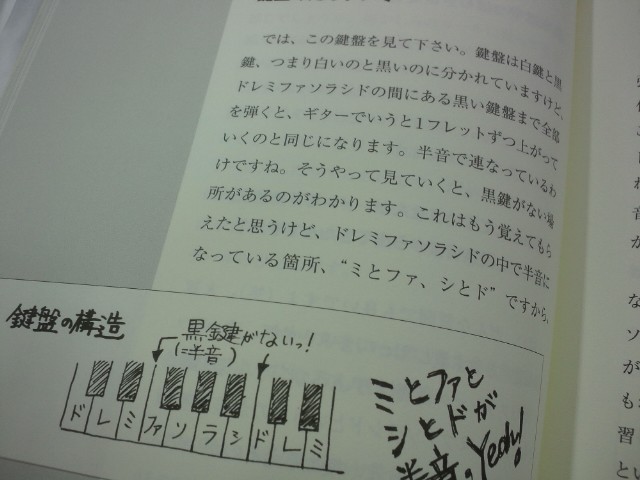 では、この鍵盤を見て下さい。鍵盤は白鍵と黒
鍵、つまり白いのと黒いのに分かれていますけど、
ドレミファソラシドの間にある黒い鍵盤まで全部
を弾くと、ギターでいうと1フレットずつ上がって
いくのと同じになります。半音で連なっているわ
けですね。そうやって見ていくと、黒鍵がない場
所があるのがわかります。これはもう覚えてもら
えたと思うけど、ドレミファソラシドの中で半音に
なっている箇所、“ミとファ、シとド”ですから、
鍵盤の構造
黒鍵がないっ!
(=半音)
ド レ ミ ファ ソ ラ シ ド レ ミ
ミとファと
シとドが
半音。Yeah!
な
ソ
が
も
習
とい